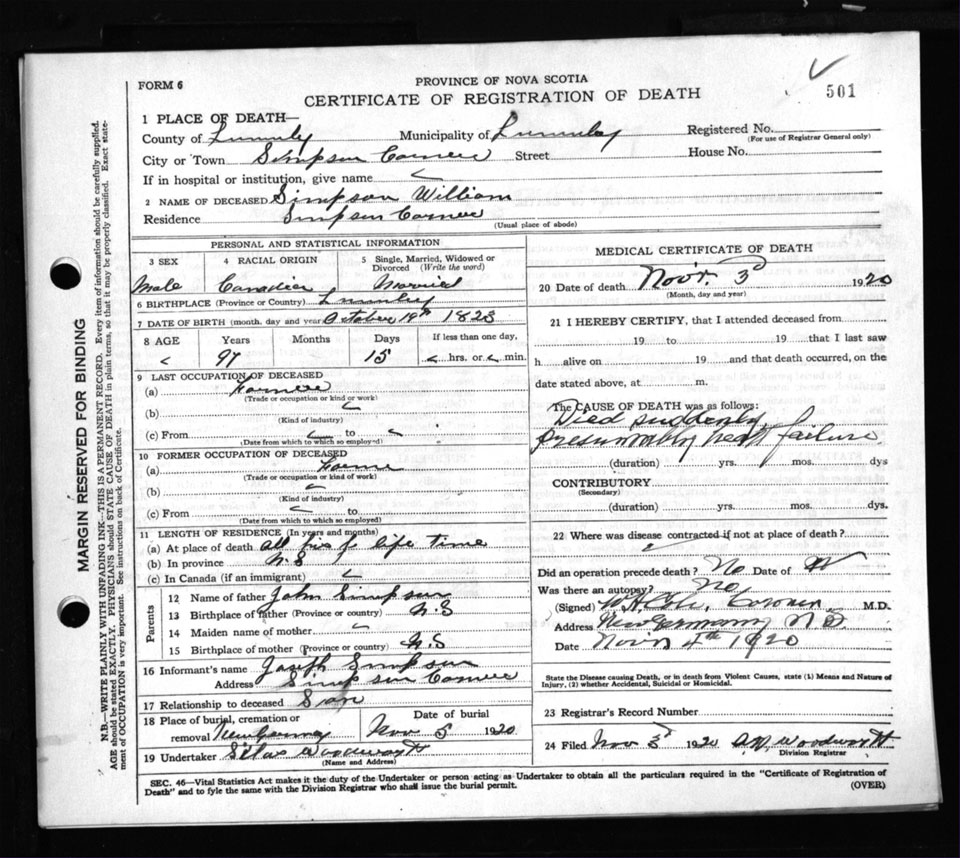 FORM 6
PROVINCE OF NOVA SCOTIA
CERTIFICATE OF REGISTRATION OF DEATH
501
1 PLACE OF DEATH—
County of Lunenburg Municipality of Lunenburg Registered No.
(For use of Registrar General only)
City or Town Simpson Corner Street House No.
If in hospital or institution, give name
2 NAME OF DECEASED Simpson William
Residence Simpson Corner
(Usual place of abode)
PERSONAL AND STATISTICAL INFORMATION
3 SEX
4 RACIAL ORIGIN
5 Single, Married, Widowed or Divorced (Write the word)
Male Canadian Married
6 BIRTHPLACE (Province or Country)
7 DATE OF BIRTH (month, day and year) October 19th 1823
8 AGE Years Months Days If less than one day,
97 15 hrs. or min.
9 LAST OCCUPATION OF DECEASED
(a) Farmer
(Trade or occupation or kind or work)
(b)
(Kind of industry)
(c) From to
(Date from which to which so employed)
10 FORMER OCCUPATION OF DECEASED
(a)
(Trade or occupation or kind of work)
(b)
(Kind of industry)
(c) From to
(Date from which to which so employed)
11 LENGTH OF RESIDENCE (In years and months)
(a) At place of death all his life time
(b) In province N.S
(c) In Canada (if an immigrant)
Parents
12 Name of father John Simpson
13 Birthplace of father (Province or country) N.S
14 Maiden name of mother
15 Birthplace of mother (Province or country) N.S
16 Informant's name Joseph Simpson
Address Simpson Corner
17 Relationship to deceased Son
18 Place of burial, cremation or removal New Germany
Date of burial
Nov 5 1920
19 Undertaker Silas Woodworth
(Name and Address)
MEDICAL CERTIFICATE OF DEATH
20 Date of death Nov'r. 3d 1920
(Month, day and year)
21 I HEREBY CERTIFY, that I attended deceased from
19 to 19 that I last saw
h alive on 19 and that death occurred, on the
date stated above, at m.
The CAUSE OF DEATH was as follows:
Died suddenly,
presumably heart failure
(duration) yrs. mos. dys
CONTRIBUTORY
(Secondary)
(duration) yrs. mos. dys.
22 Where was disease contracted if not at place of death?
Did an operation precede death? No Date of
Was there an autopsy? No
(Signed) Coroner M.D.
Address New Germany N.S.
Date Nov'r 4th 1920
State the Disease causing Death, or in death from Violent Causes, state (1) Means and Nature of
Injury, (2) whether Accidental, Suicidal or Homicidal.
23 Registrar's Record Number
24 Filed Nov 3d 1920 Woodworth
Division Registrar
SEC. 46—Vital Statistics Act makes it the duty of the Undertaker or person acting as Undertaker to obtain all the particulars required in the "Certificate of Registration of
Death" and to fyle the same with the Division Registrar who shall issue the burial permit.
(OVER)
MARGIN RESERVED FOR BINDING
N.B.—WRITE PLAINLY WITH UNFADING INK—THIS IS A PERMANENT RECORD. Every item of information should be carefully supplied.
AGE should be stated EXACTLY. PHYSICIANS should STATE CAUSE OF DEATH in plain terms, so that it may be properly classified. Exact state-
ment of OCCUPATION is very important. See instructions on back of Certificate.